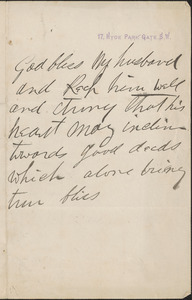 17, HYDE PARK GATE, S.W.
God bless My husband
and keep him well
and that his
heart may incline
towards good deeds
which alone bring
true bliss